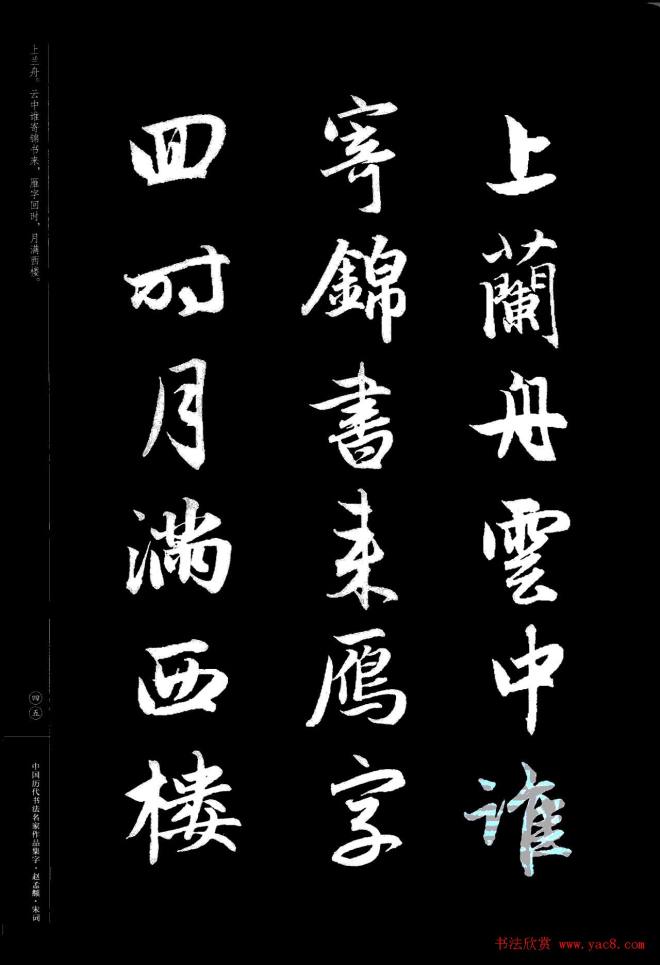 上蘭舟雲中誰
寄錦書来鴈字
回时月满西楼
上兰舟。云中谁寄锦书来，雁字回时，月满西楼。
四五
中国历代书法名家作品集字·赵孟頫·宋词
书法欣赏 www.yac8.com